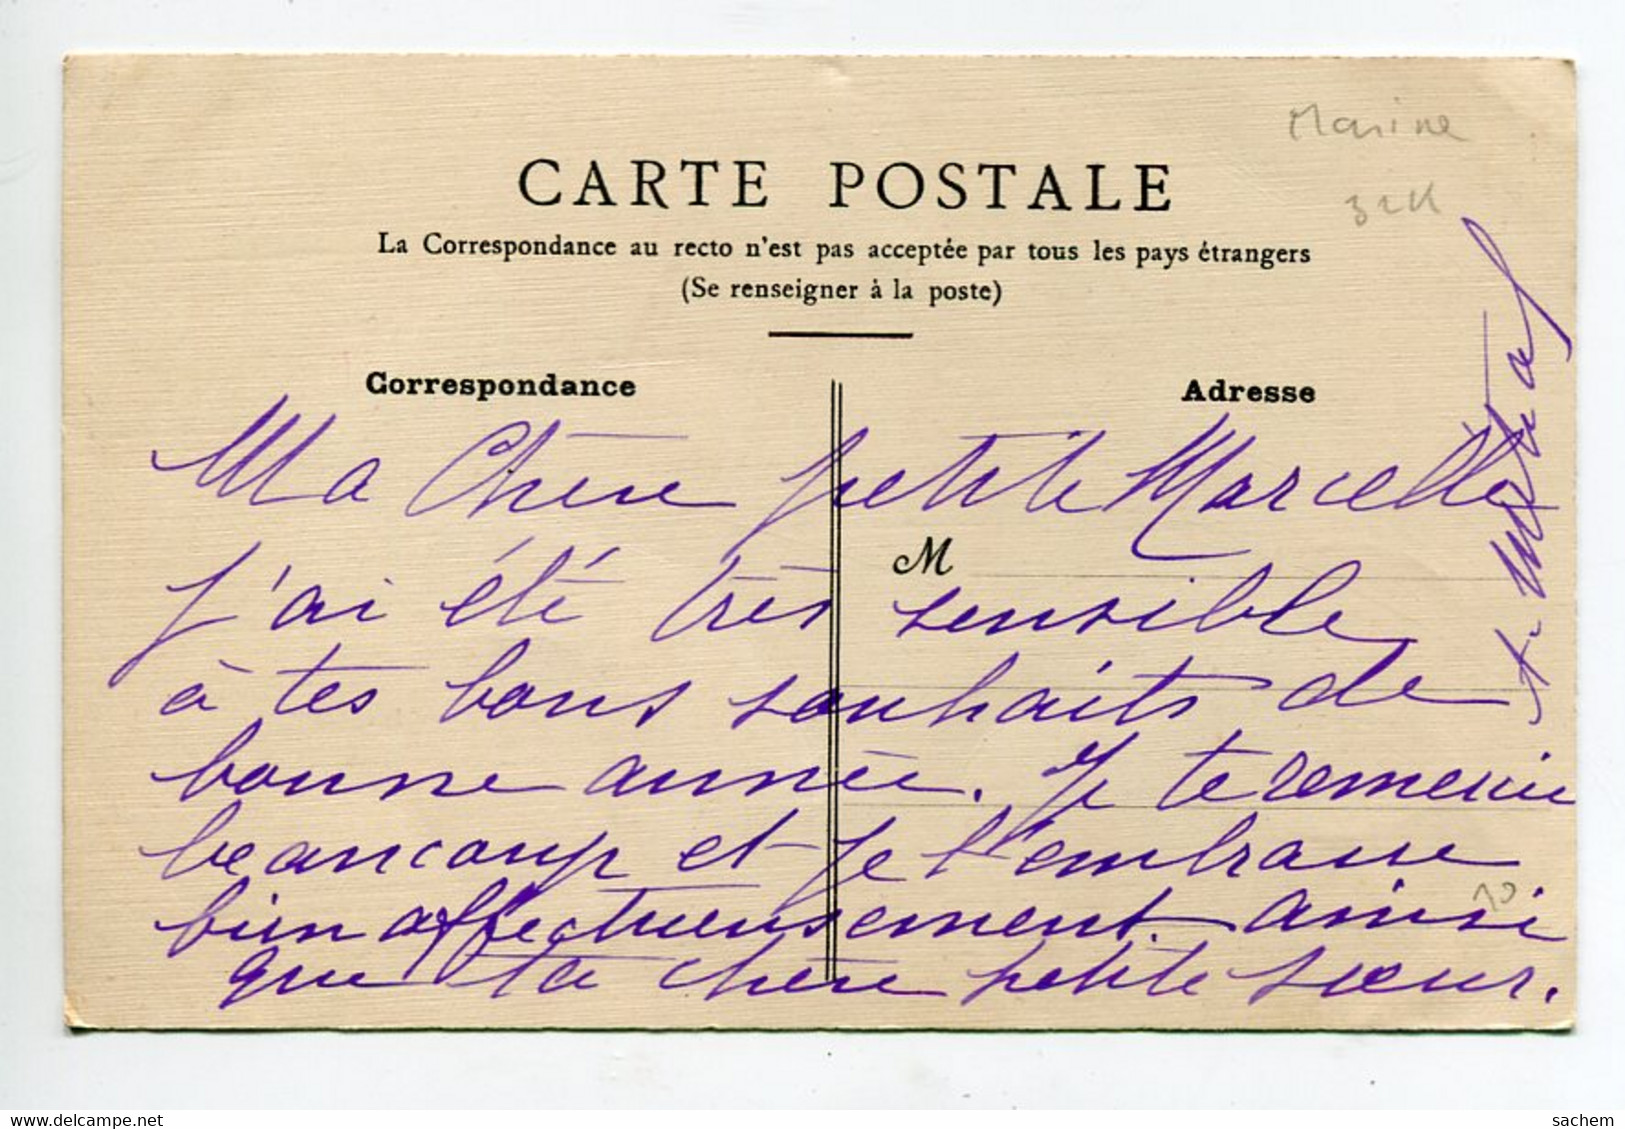 Marine
CARTE POSTALE
La Correspondance au recto n'est pas acceptée par tous les pays étrangers
(Se renseigner à la poste)
Correspondance
Adresse
M
Ma Chère petite Marcelle
J'ai été très sensible
à tes bons souhaits de
bonne année. Je te remercie
beaucoup et je t'embrasse
bien affectueusement ainsi
que ta chère petite sœur.
10
delcampe.net
sachem